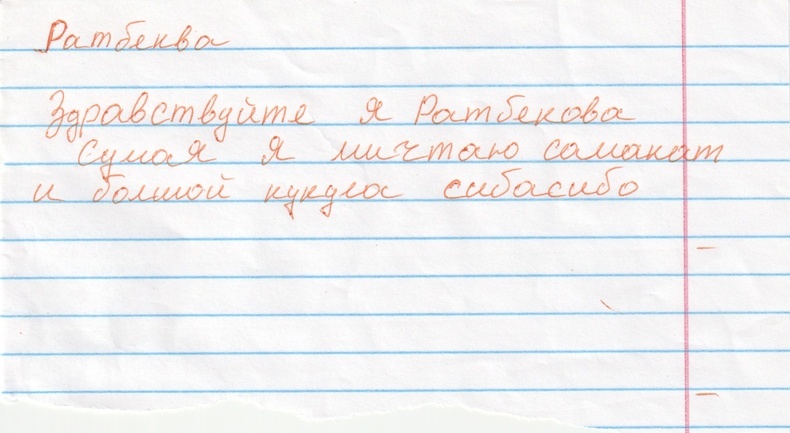 Ратбеква
Здравствуйте я Ратбекова
Сумая я мичтаю самакат
и болшой кукула сибасибо